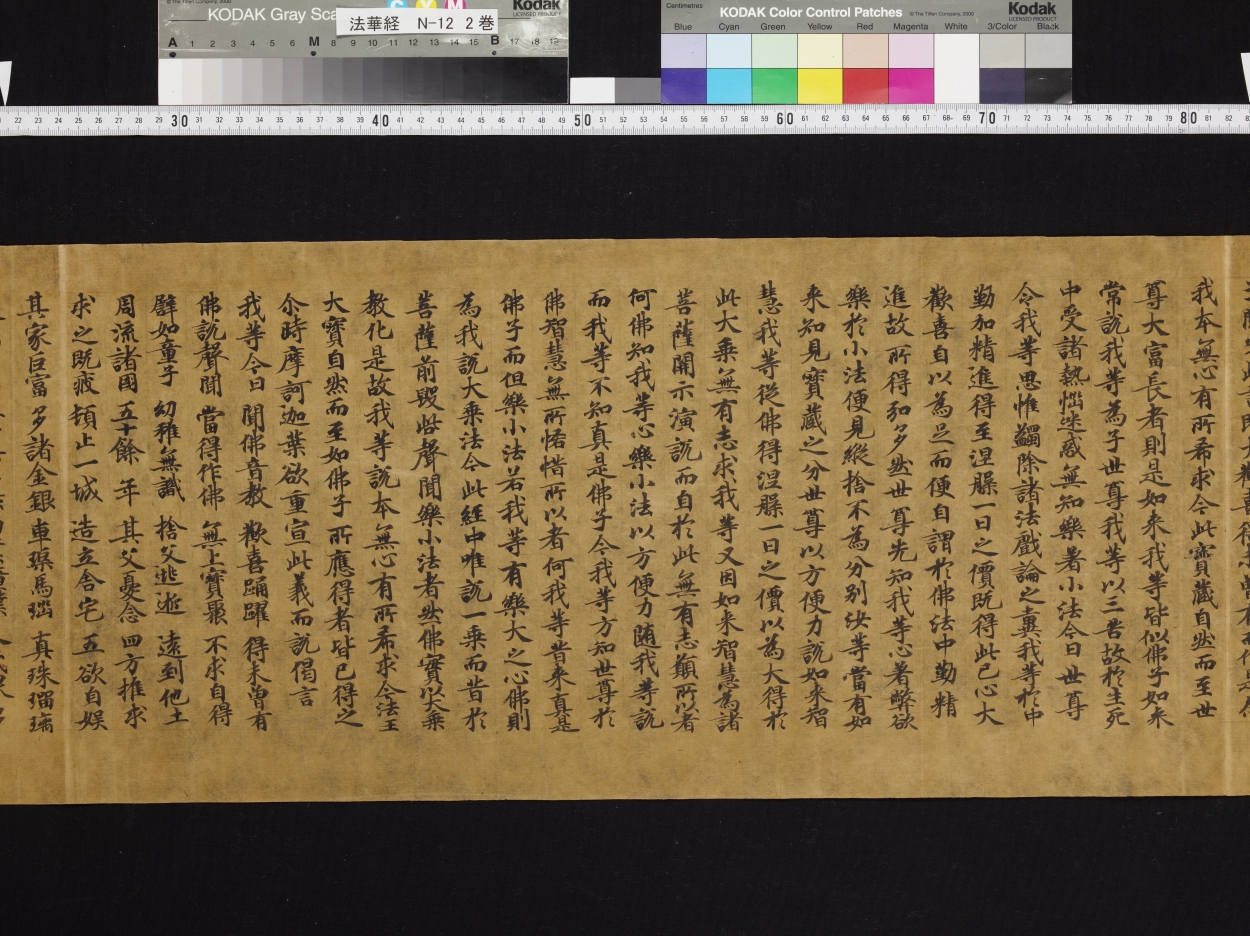 © The Tiffen Company, 2000
KODAK Gray Sca
Kodak
LICENSED PRODUCT
C Y M
法華経 N-12 2巻
A 1 2 3 4 5 6 M 8 9 10 11 12 13 14 15 B 17 18 19
Centimetres
KODAK Color Control Patches
© The Tiffen Company, 2000
Kodak
LICENSED PRODUCT
Blue Cyan Green Yellow Red Magenta White 3/Color Black
22 23 24 25 26 27 28 29 30 31 32 33 34 35 36 37 38 39 40 41 42 43 44 45 46 47 48 49 50 51 52 53 54 55 56 57 58 59 60 61 62 63 64 65 66 67 68 69 70 71 72 73 74 75 76 77 78 79 80 81 82
我本無心有所希求今此寶藏自然而至世
尊大富長者則是如来我等皆似佛子如来
常說我等為子世尊我等以三苦故於生死
中受諸熱惱迷惑無知樂著小法今日世尊
令我等思惟蠲除諸法戲論之糞我等於中
勤加精進得至涅槃一日之價既得此已心大
歡喜自以為足而便自謂於佛法中勤精
進故所得弘多然世尊先知我等心著弊欲
樂於小法便見縱捨不為分別汝等當有如
来知見寶藏之分世尊以方便力說如来智
慧我等從佛得涅槃一日之價以為大得於
此大乗無有志求我等又因如来智慧為諸
菩薩開示演說而自於此無有志願所以者
何佛知我等心樂小法以方便力随我等說
而我等不知真是佛子今我等方知世尊於
佛智慧無所悋惜所以者何我等昔来真是
佛子而但樂小法若我等有樂大之心佛則
為我說大乗法今此經中唯說一乗而昔於
菩薩前毀呰聲聞樂小法者然佛實以大乗
教化是故我等說本無心有所希求今法王
大寶自然而至如佛子所應得者皆已得之
尒時摩訶迦葉欲重宣此義而說偈言
我等今日 聞佛音教 歡喜踊躍 得未曽有
佛說聲聞 當得作佛 無上寶聚 不求自得
譬如童子 幼稚無識 捨父逃逝 遠到他土
周流諸國 五十餘年 其父憂念 四方推求
求之既疲 頓止一城 造立舍宅 五欲自娱
其家巨富 多諸金銀 車𤦲馬瑙 真珠瑠璃